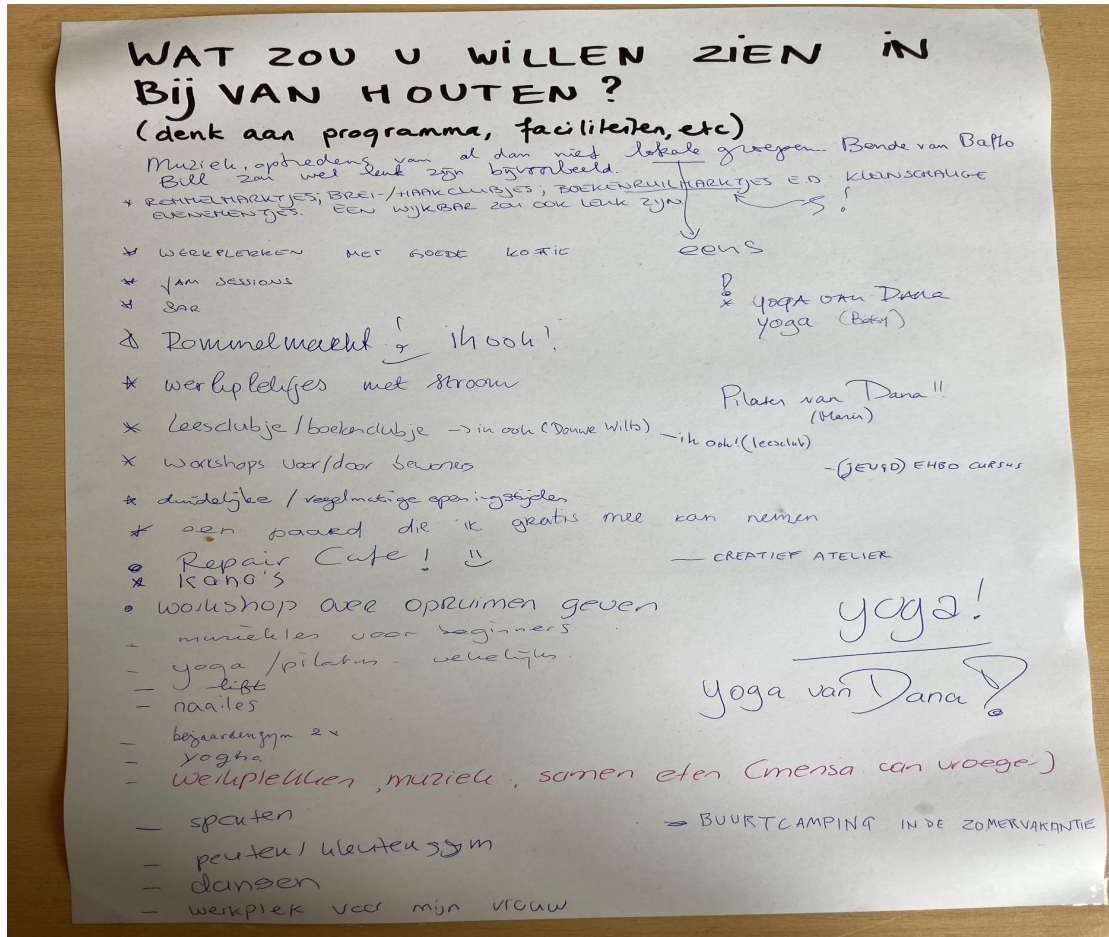 WAT ZOU U WILLEN ZIEN IN
Bij VAN HOUTEN?
(denk aan programma, faciliteiten, etc)
Muziek, optredens van al dan niet lokale groepen. Bende van Baflo
Bill zou wel leuk zijn bijvoorbeeld.
* ROMMELMARKTJES; BREI-/HAAKCLUBJES; BOEKENRUILMARKTJES E.D. KLEINSCHALIGE
EVENEMENTJES. EEN WIJKBAR ZOU OOK LEUK ZIJN !
* WERKPLEKKEN MET GOEDE KOFFIE
eens
* JAM SESSIONS
* BAR
! * YOGA VAN DANA
yoga (Betsy)
Rommelmarkt ! ik ook!
* werkplekjes met stroom
Pilates van Dana!!
(Maris)
* Leesclubje/boekenclubje -> ik ook (Douwe Wilts) - ik ook! (leesclub)
* workshops voor/door bewoners
- (JEUGD) EHBO CURSUS
* duidelijke / regelmatige openingstijden
* een paard die ik gratis mee kan nemen
• Repair Cafe!
— CREATIEF ATELIER
* Kano's
• workshop over opruimen geven
- muziekles voor beginners
yoga!
- yoga/pilatus - wekelijks
- lift
yoga van Dana!
- naailes
- bejaardengym 2x
- yogha
- werkplekken, muziek, samen eten (mensa van vroeger)
- sporten
-> BUURTCAMPING IN DE ZOMERVAKANTIE
- peuter/kleutergym
- dansen
- werkplek voor mijn vrouw